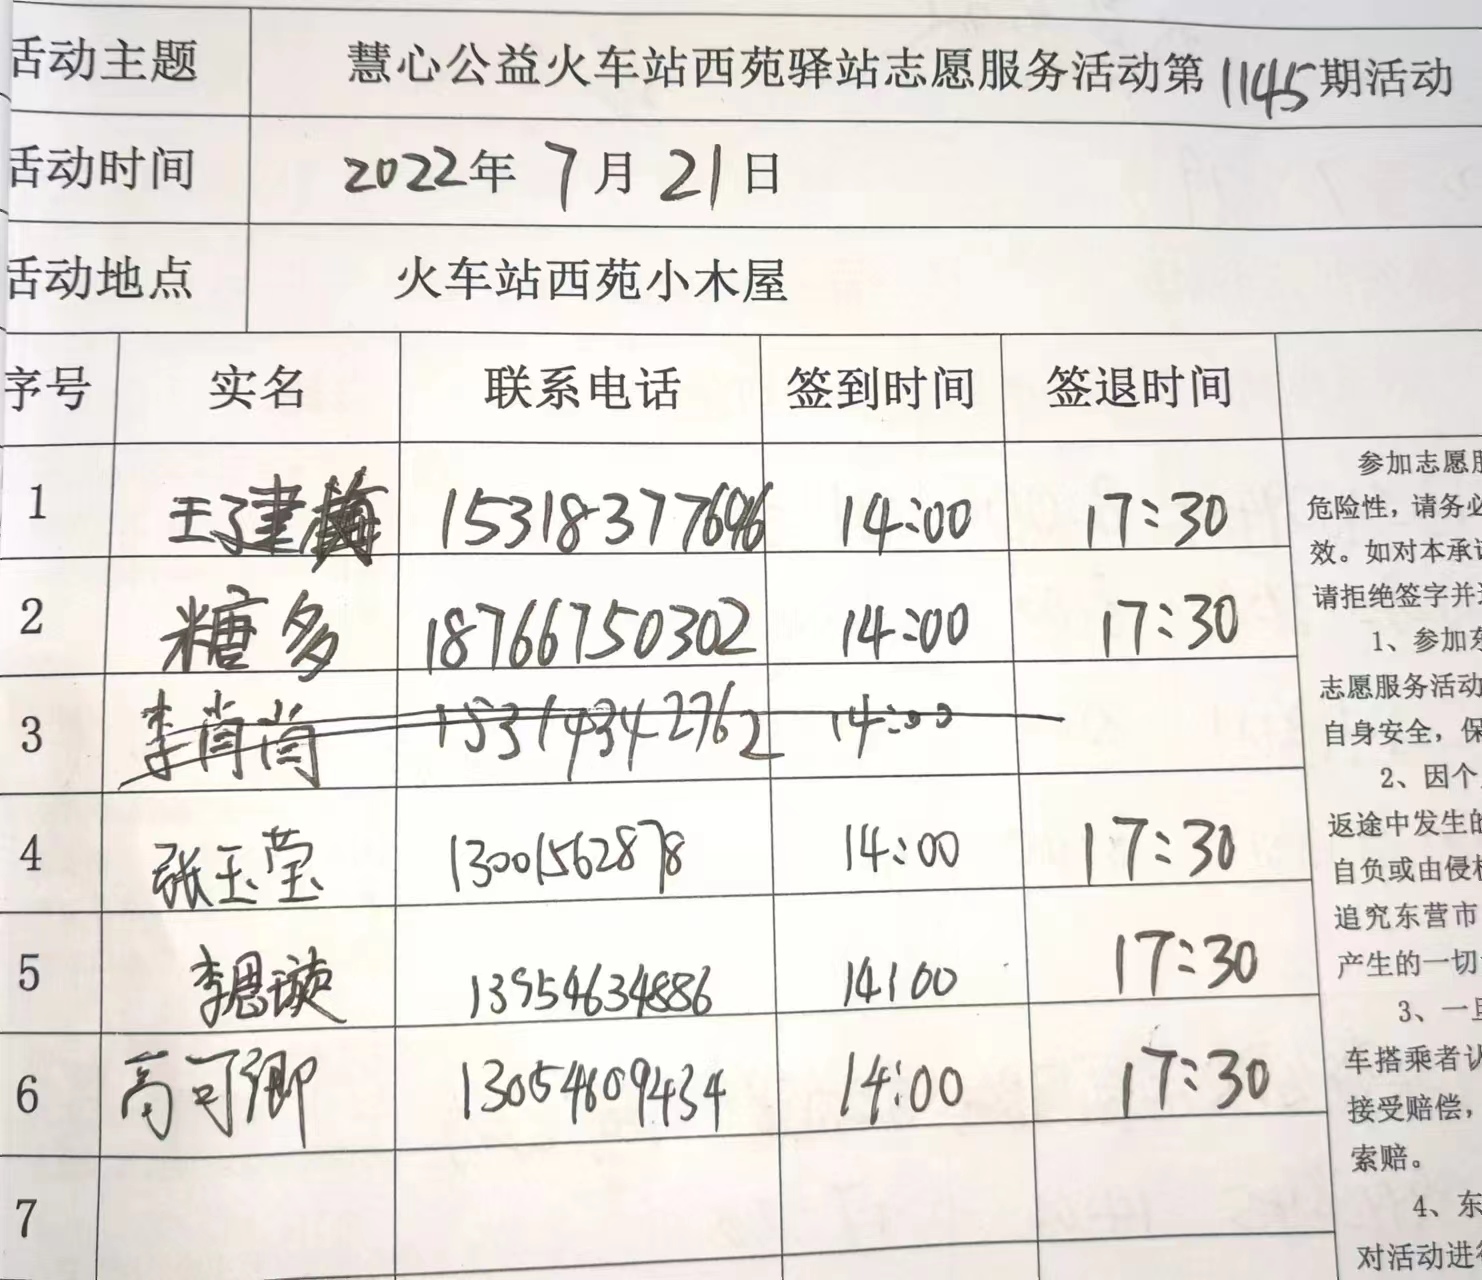 活动主题 慧心公益火车站西苑驿站志愿服务活动第1145期活动
活动时间 2022年 7月 21日
活动地点 火车站西苑小木屋
序号 实名 联系电话 签到时间 签退时间
1 王建梅 15318377696 14:00 17:30
2 糖多 18766750302 14:00 17:30
3 李肖肖 15314342762 14:00
4 张玉莹 13001562878 14:00 17:30
5 李思璇 13954634886 14:00 17:30
6 高可卿 13054609434 14:00 17:30
7
参加志愿服
危险性，请务必
效。如对本承
请拒绝签字并
1、参加东
志愿服务活动
自身安全，保
2、因个
返途中发生的
自负或由侵
追究东营市
产生的一切
3、一旦
车搭乘者
接受赔偿，
索赔。
4、东
对活动进行